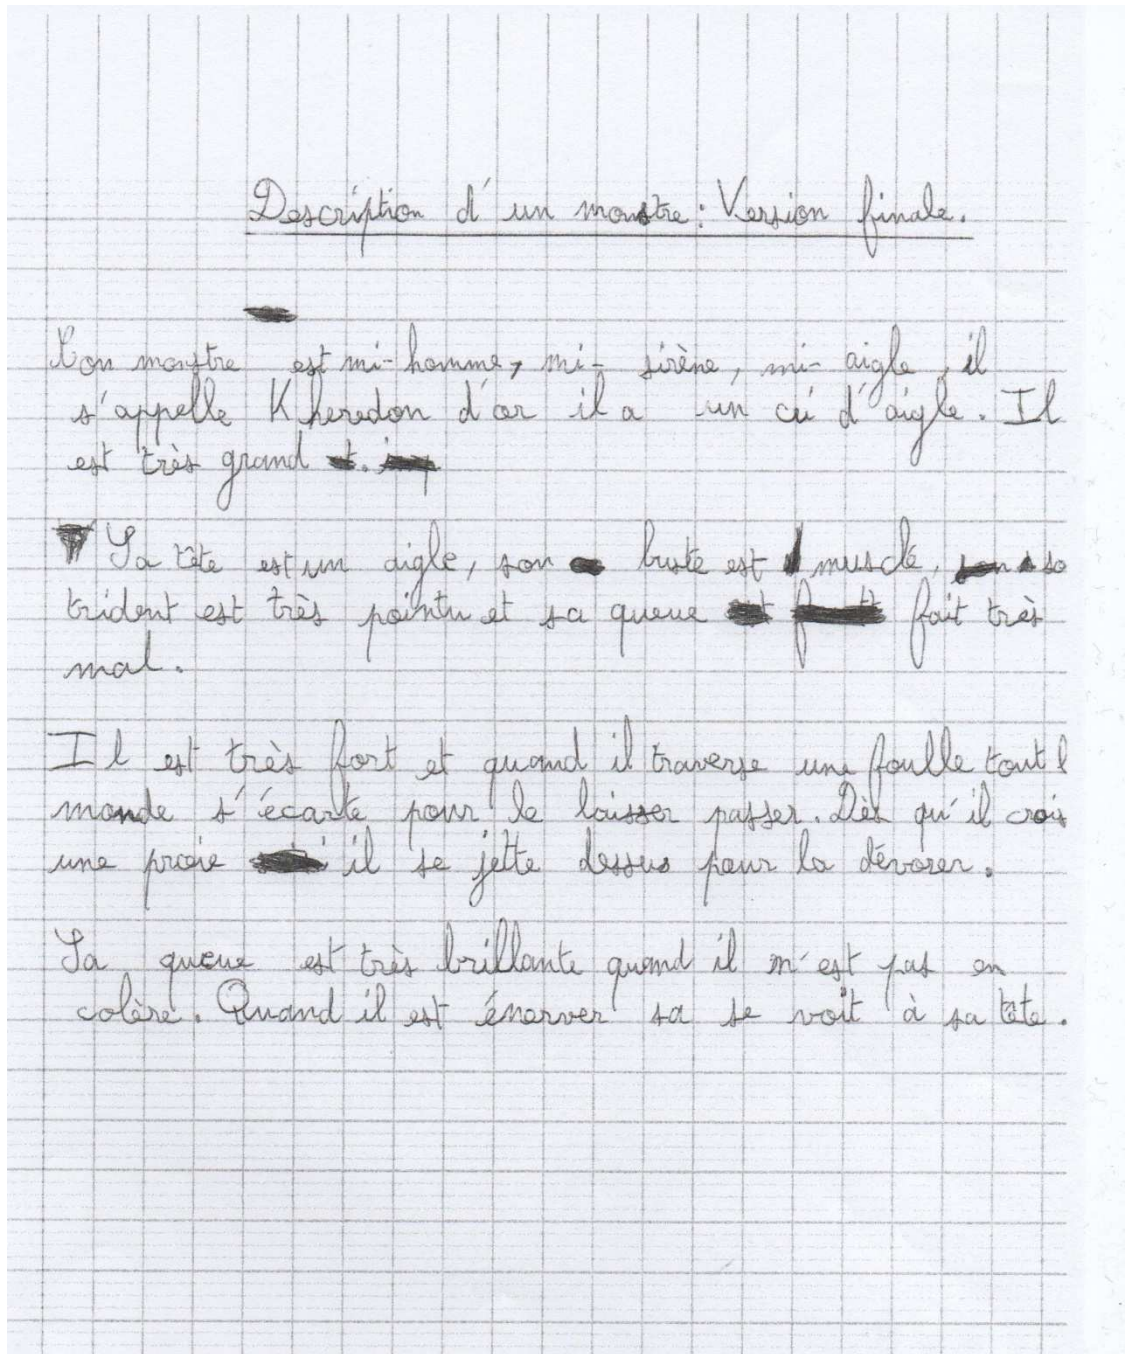 Description d'un monstre : Version finale.
Mon monstre est mi-homme, mi-sirène, mi-aigle, il
s'appelle Kheredon d'or il a un cri d'aigle. Il
est très grand
Sa tête est un aigle, son buste est musclé, so
trident est très pointu et sa queue fait très
mal.
Il est très fort et quand il traverse une foulle tout l
monde s'écarte pour le laisser passer. Dès qu'il crois
une proie il se jette dessus pour la dévorer.
Sa queue est très brillante quand il n'est pas en
colère. Quand il est énerver sa se voit à sa tête.